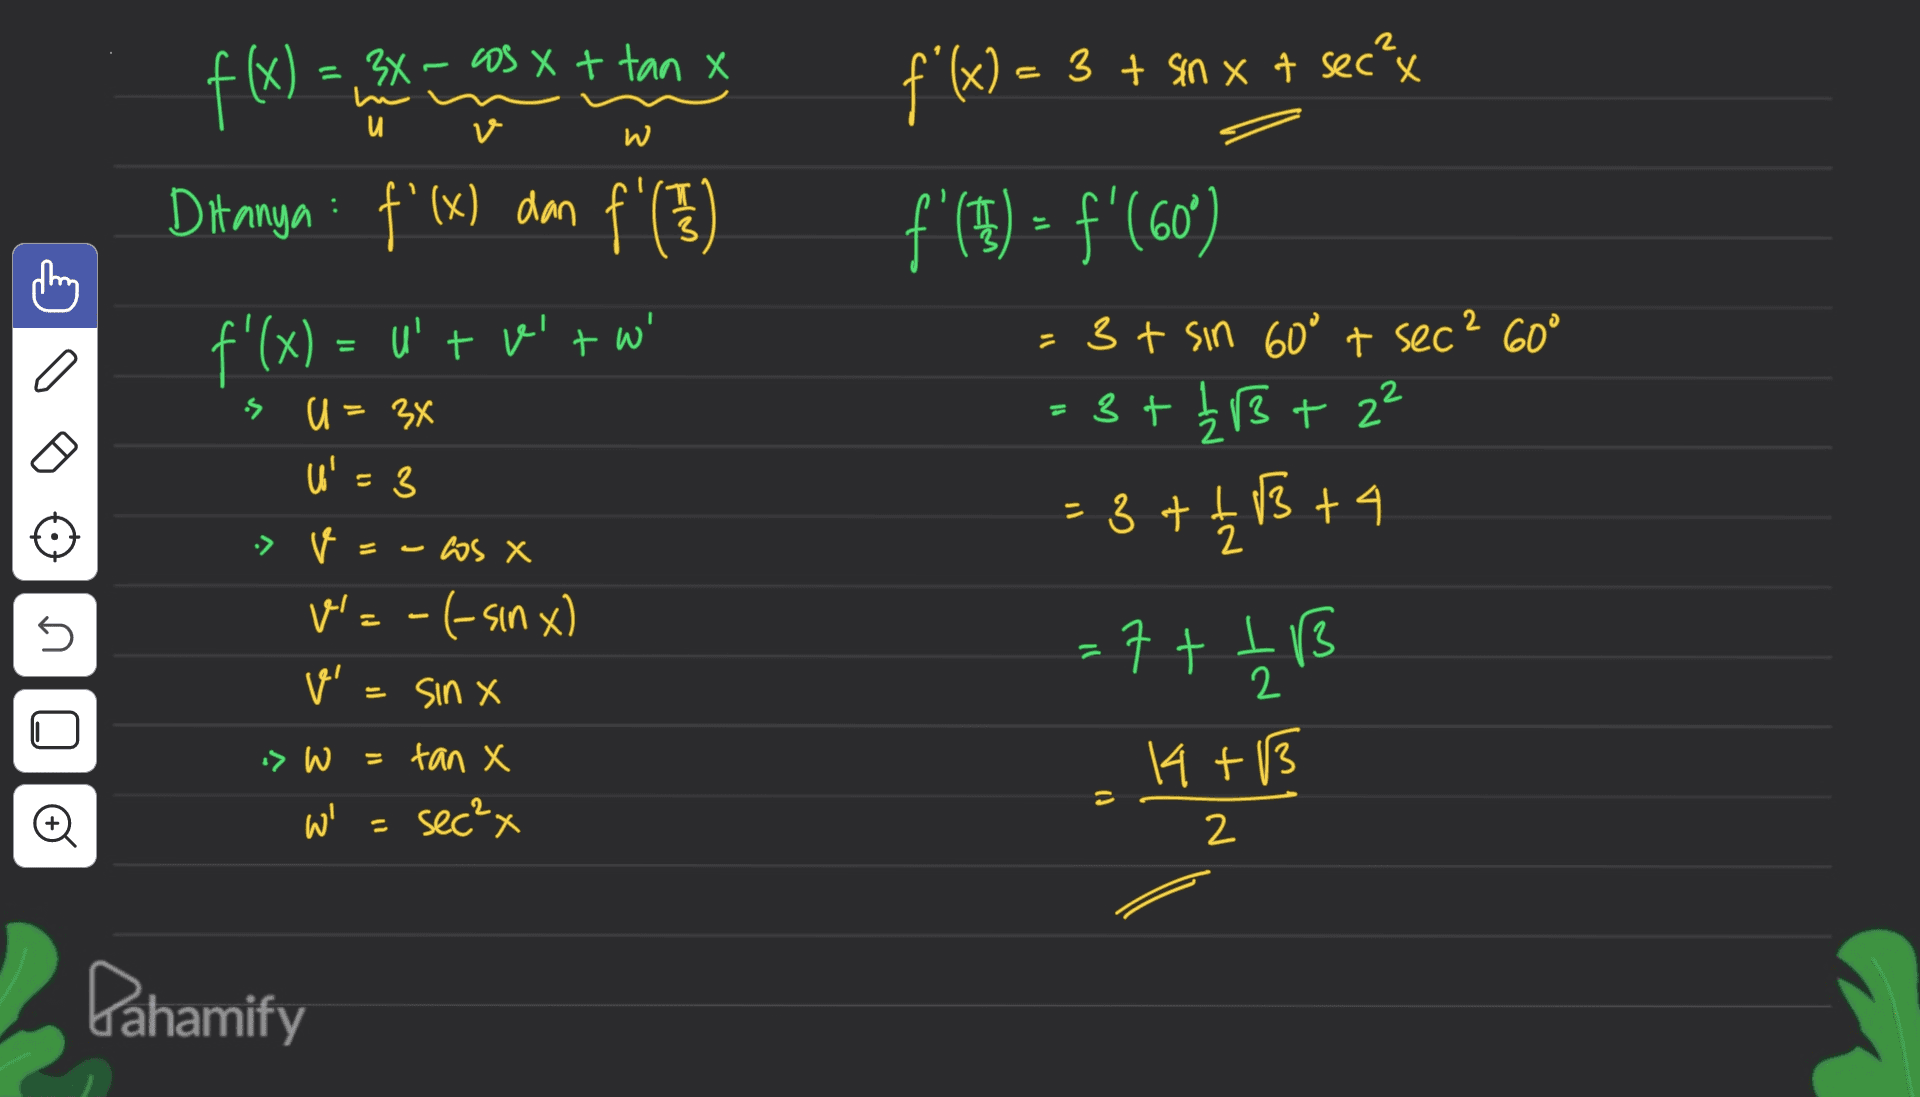 f(x) = 3x - cos x + tan x
u v w
Ditanya : f'(x) dan f'(π/3)
f'(x) = u' + v' + w'
u = 3x
u' = 3
v = - cos x
v' = -(-sin x)
v' = sin x
w = tan x
w' = sec²x
f'(x) = 3 + sin x + sec²x
f'(π/3) = f'(60°)
= 3 + sin 60° + sec² 60°
= 3 + 1/2 √3 + 2²
= 3 + 1/2 √3 + 4
= 7 + 1/2 √3
= 14 + √3
2
Pahamify